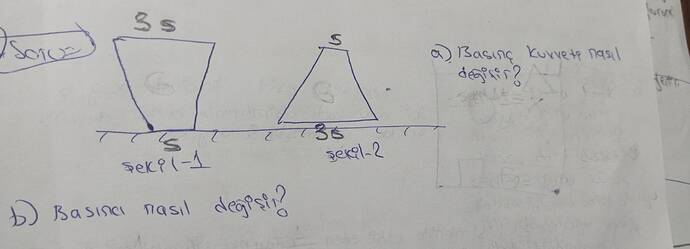 Soru=
3s
s
G
G
a) Basınç kuvveti nasıl
değişir?
s
3s
şekil-1
şekil-2
b) Basıncı nasıl değişir?